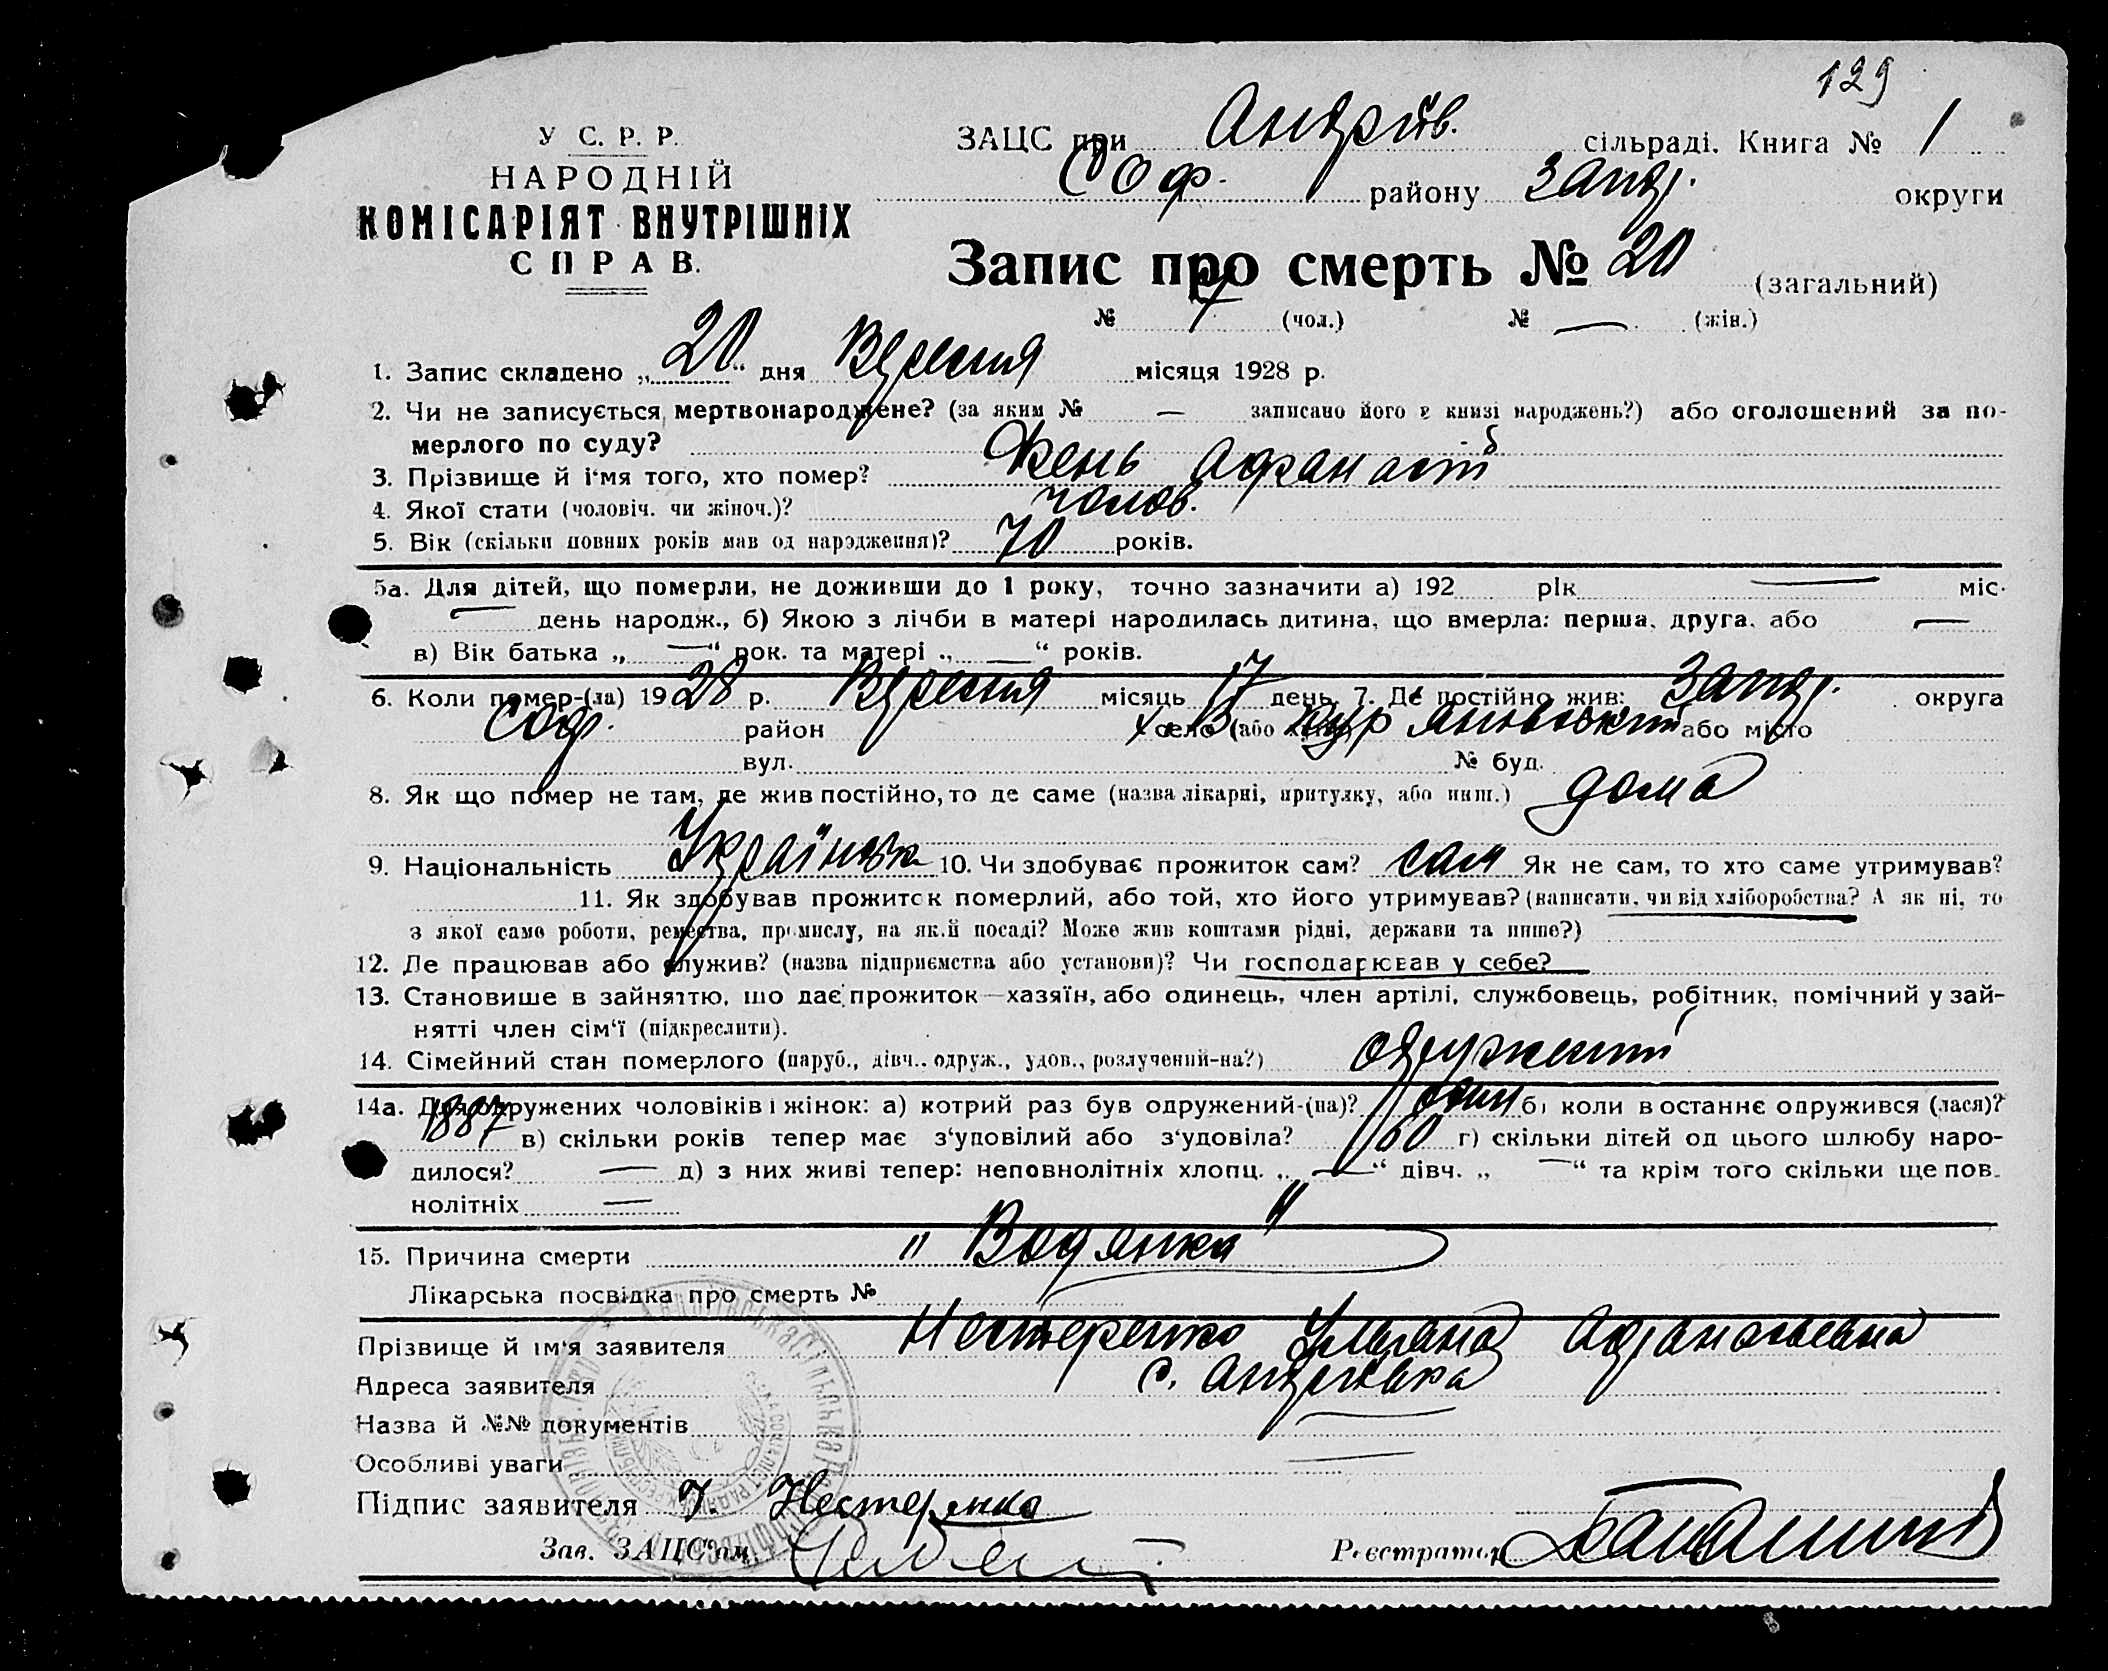 129
У С. Р. Р.
НАРОДНІЙ
КОМІСАРІЯТ ВНУТРІШНІХ
СПРАВ.
ЗАЦС при Андріїв. сільраді. Книга № 1
Соф. району Запор. округи
Запис про смерть № 20 (загальний)
№ 7 (чол.) № — (жін.)
1. Запис складено „20“ дня Вересня місяця 1928 р.
2. Чи не записується мертвонароджене? (за яким № — записано його в книзі народжень?) або оголошений за по-
мерлого по суду?
3. Прізвище й і'мя того, хто помер? Афанасій
4. Якої стати (чоловіч. чи жіноч.)? чолов.
5. Вік (скільки повних років мав од нарэдження)? 70 років.
5а. Для дітей, що померли, не доживши до 1 року, точно зазначити а) 192 рік — міс.
— день народж., б) Якою з лічби в матері народилась дитина, що вмерла: перша, друга, або —
в) Вік батька „—“ рок. та матері „—“ років.
6. Коли помер-(ла) 1928 р. Вересня місяць 17 день, 7. Де постійно жив: Запор. округа
Соф. район село (або хутір) або місто
вул. № буд.
8. Як що помер не там, де жив постійно, то де саме (назва лікарні, притулку, або инш.) дома
9. Національність Українська 10. Чи здобуває прожиток сам? сам Як не сам, то хто саме утримував?
11. Як здобував прожиток померлий, або той, хто його утримував? (написати, чи від хліборобства? А як ні, то
з якої само роботи, ремества, промислу, на як.й посаді? Може жив коштами рідні, держави та инше?)
12. Де працював або служив? (назва підприємства або установи)? Чи господарював у себе?
13. Становище в зайняттю, що дає прожиток—хазяїн, або одинець, член артілі, службовець, робітник, помічний у зай-
нятті член сім'ї (підкреслити).
14. Сімейний стан померлого (паруб., дівч., одруж., удов., розлучений-на?) одружений
14а. Для одружених чоловіків і жінок: а) котрий раз був одружений-(на)? один б) коли в останнє одружився (лася)?
1887 в) скільки років тепер має з'уповілий або з'удовіла? 60 г) скільки дітей од цього шлюбу наро-
дилося? — д) з них живі тепер: неповнолітніх хлопц. „—“ дівч. „—“ та крім того скільки ще пов-
нолітніх —
15. Причина смерти "Водянка"
Лікарська посвідка про смерть №
Прізвище й ім'я заявителя Нестеренко Уляна Афанасьевна
Адреса заявителя с. Андріївка
Назва й №№ документів
Особливі уваги
Підпис заявителя У. Нестеренко
Зав. ЗАЦС'ом Реєстратор